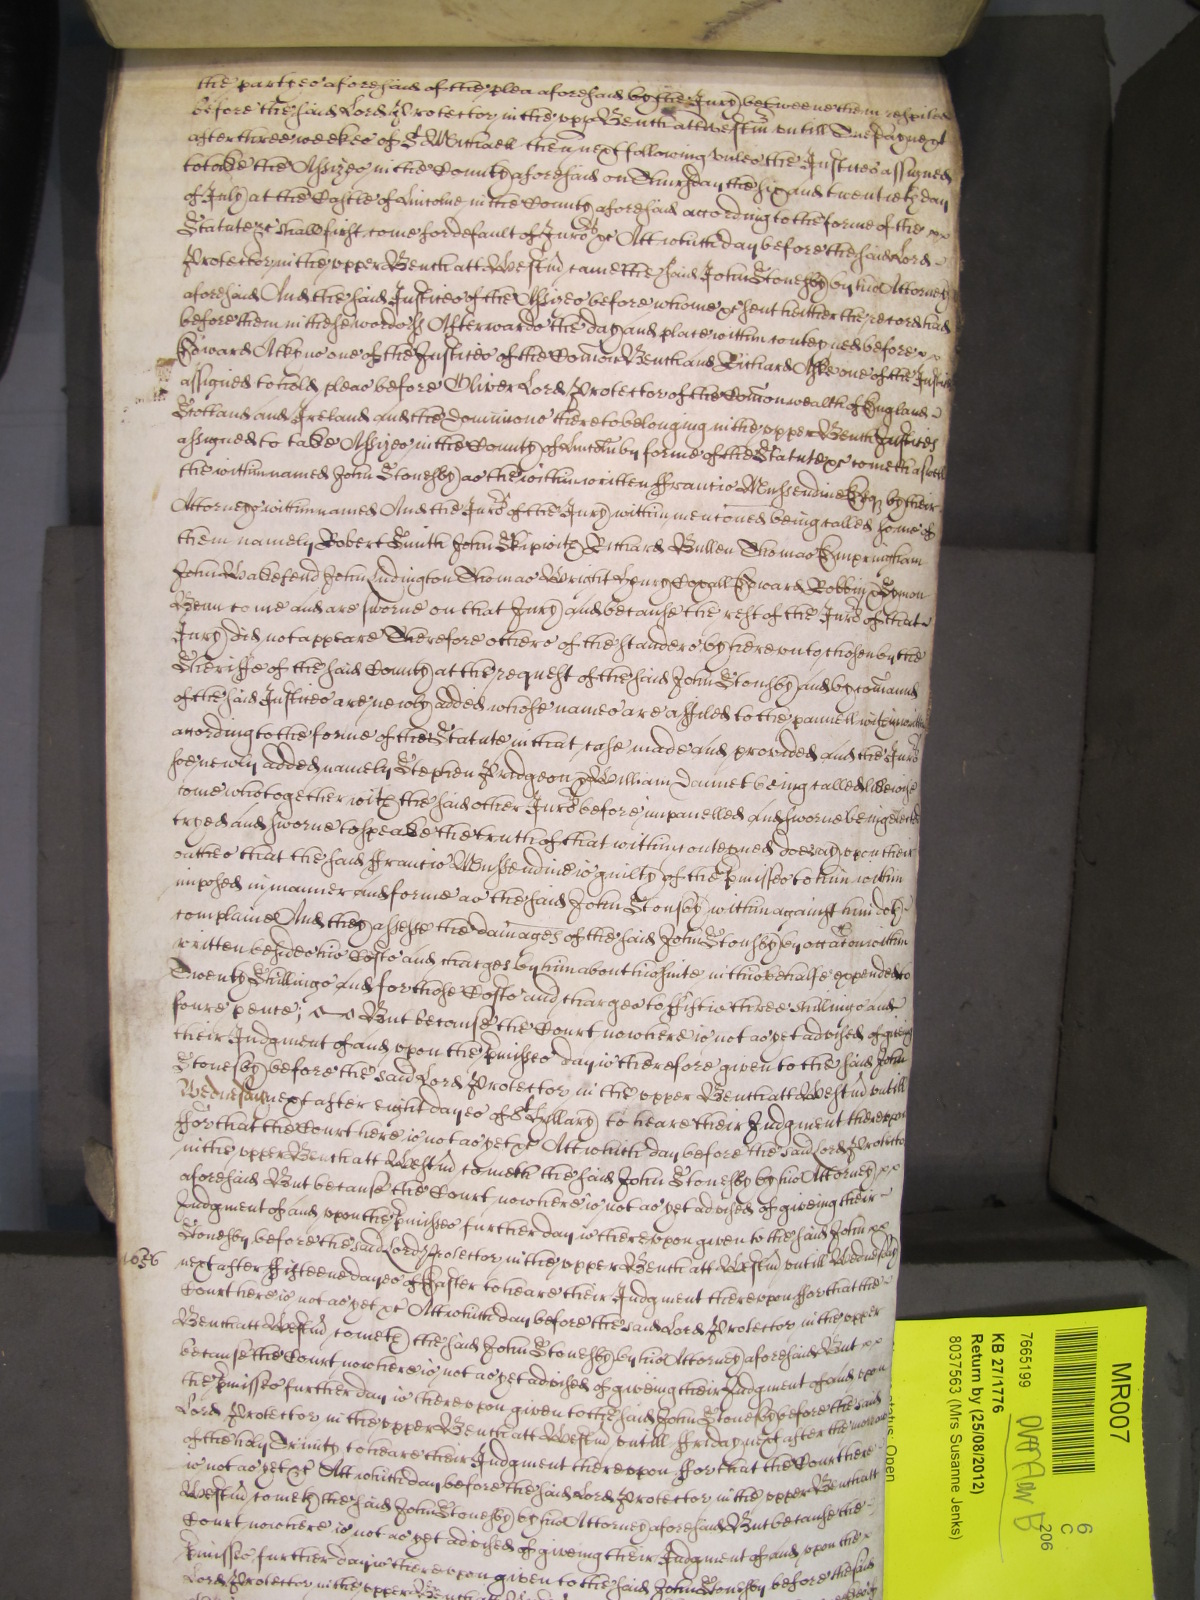 the partyes aforesaid of the plea aforesaid by the Jury betweene them respited
before the said Lord Protector in the upp Bench att Westm untill Tuesday next
after three weekes of St Michaell then next following unles the Justices assigned
to take the Assizes in the County aforesaid on Thursday the six and twentieth day
of July at the Castle of Lincolne in the County aforesaid according to the forme of the xx
Statute &c shall first come for default of Jurors &c Att which day before the said Lord
Protector in the upper Bench att Westm came the said John Stonesby by his Attorney
aforesaid And the said Justices of the Assizes before whome &c sent hether the record had
before them in these words ss Afterwards the day and place within conteyned before xx
Edward Atkyns one of the Justices of the Comon Bench and Richard Aske one of the Justices
assigned to hold pleas before Oliver Lord Protector of the Comonwealth of England
Scotland and Ireland and the dominions thereto belonging in the upper Bench Justices
assigned to take Assizes in the County of Lincoln by forme of the Statute &c cometh aswell
the within named John Stonesby as the within written Ffrancis Mussendine Esq by their
Attorneys within named And the Jurors of the Jury within mentioned being called some of
them namely Robert Smith John Skipwith Richard Bullen Thomas Empringham
John Wakefend John Ludington Thomas Wright Henry Coxall Edward Robbins Symon
Benn come and are sworne on that Jury and because the rest of the Jurors of that
Jury did not appeare Therefore others of the standers by hereunto chosen by the
Sheriffe of the said County at the request of the said John Stonesby and by comaund
of the said Justices are newly added whose names are affiled to the pannell within written
according to the forme of the Statute in that case made and provided and the Jurors
soe newly added namely Stephen Pridgeon & William Dannet being called likewise
come who together with the said other Jurors before impanelled and sworne being elected
tryed and sworne to speake the truth of that within conteyned doe say upon their
oathes that the said Ffrancis Mussendine is guilty of the pmisses to him within
imposed in manner and forme as the said John Stonsby within against him doth
complaine And they assesse the damages of the said John Stonsby by occation within
written besides his Costs and charges by him about his suite in this behalfe expended to
Twenty Shillings And for those Costs and charges to ffiftie three shillings and
foure pence; But because the Court now here is not as yet advised of giving
their Judgment of and upon the pmisses day is therefore given to the said John
Stonesby before the said Lord Protector in the upper Bench att Westm untill
Wednesday next after eight dayes of St Hillary to heare their Judgment thereupon
ffor that the Court here is not as yet &c Att which day before the said Lord Protector
in the upper Bench att Westm cometh the said John Stonesby by his Attorney xx
aforesaid But because the Court now here is not as yet advised of giveing their
Judgment of and upon the pmisses further day is thereupon given to the said John xx
Stonesby before the said Lord Protector in the upper Bench att Westm untill Wednesday
1656 next after ffifteene dayes of Easter to heare their Judgment thereupon ffor that the
Court here is not as yet &c Att which day before the said Lord Protector in the upper
Bench att Westm cometh the said John Stonesby by his Attorney aforesaid But xx
because the Court now here is not as yet advised of giveing their Judgment of and upon
the pmisses further day is thereupon given to the said John Stonesby before the said
Lord Protector in the upper Bench att Westm untill Friday next after the morrow
of the holy Trinity to heare their Judgment thereupon ffor that the Court here
is not as yet &c Att which day before the said Lord Protector in the upper Bench att
Westm cometh the said John Stonesby by his Attorney aforesaid But because the
Court now here is not as yet advised of giveing their Judgment of and upon the
pmisses further day is thereupon given to the said John Stonesby before the said
Lord Protector in the upper Bench att
MR007
6
C
206
7665199
KB 27/1776
Return by (25/08/2012)
8037563 (Mrs Susanne Jenks)
Status: Open